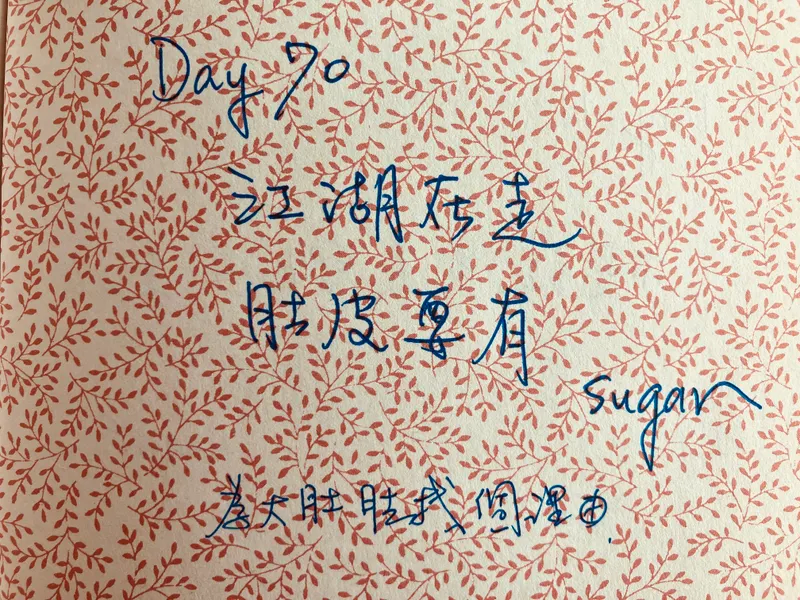 Day 70
江湖在走
肚皮要有
sugar
為大肚肚找個理由.